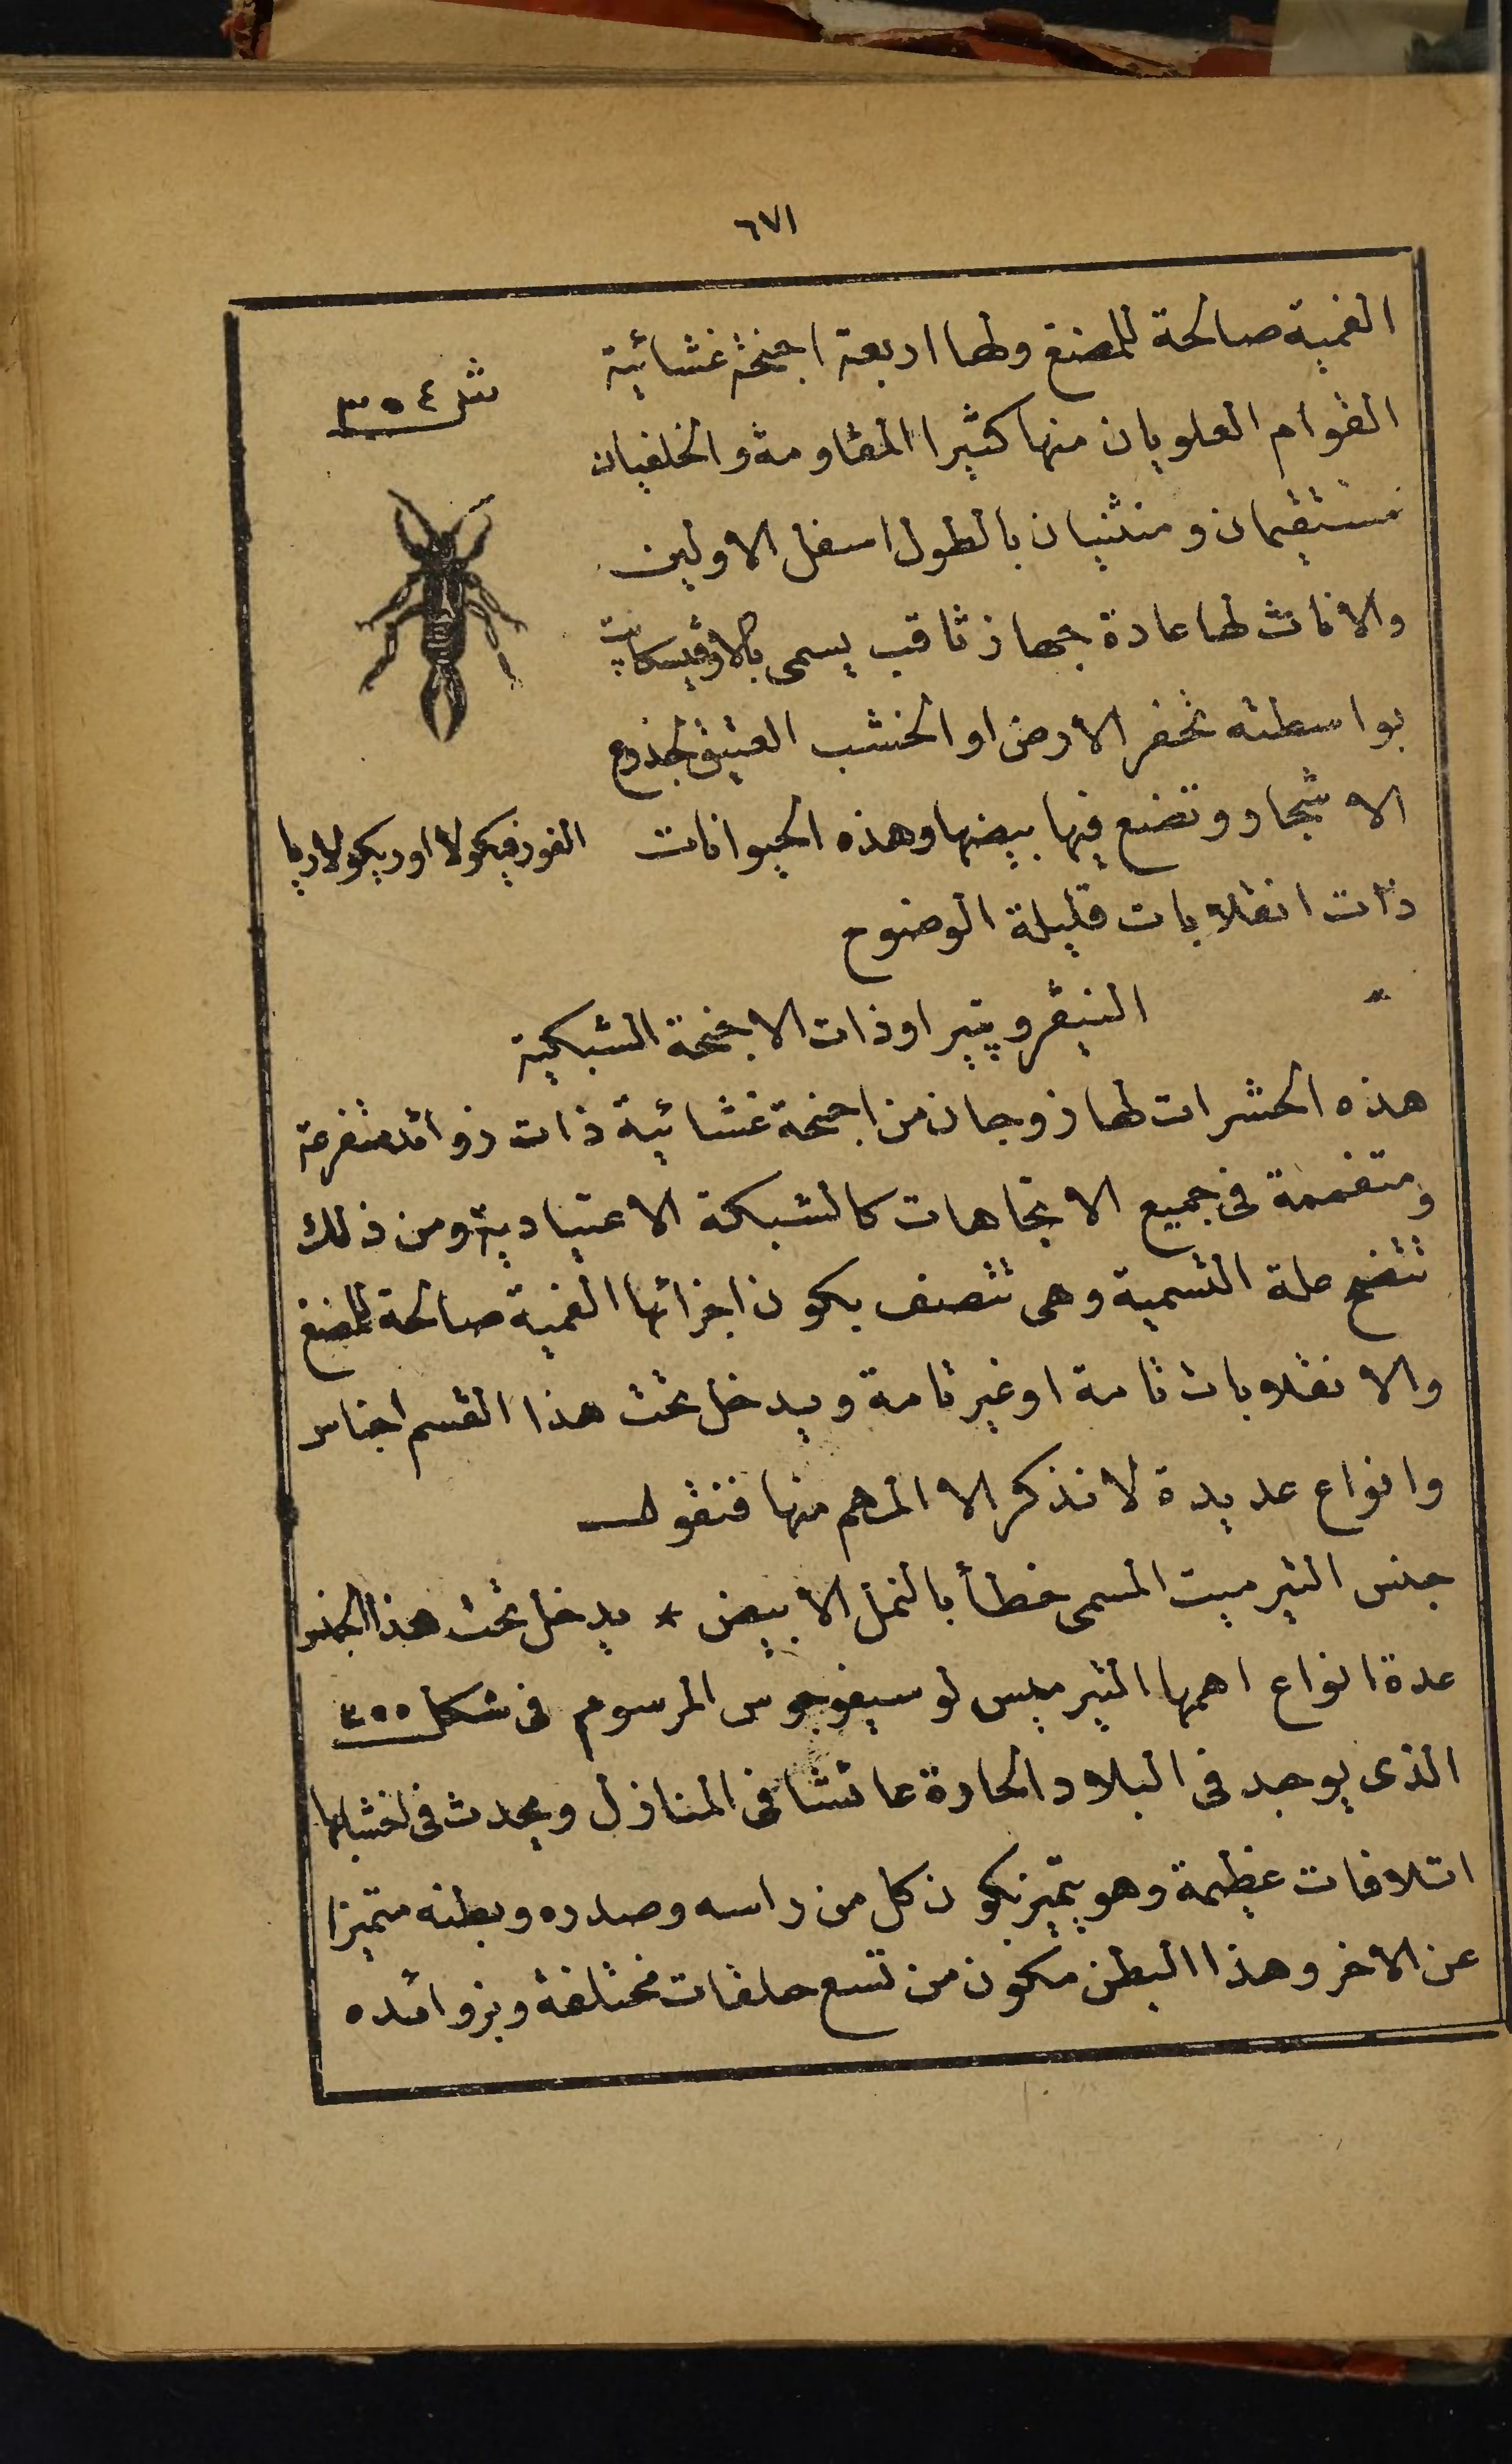 ٦٧١
الفمية صالحة للمضغ ولها اربعة اجنحة غشائية
شكل ٣٥٤
القوام العلويان منها كثيرا المقاومة والخلفيان
مستقيمان ومنثنيان بالطول اسفل الاولين
والاناث لها عادة جهاز ثاقب يسمى
بواسطته تحفر الارض او الخشب العتيق لجذوع
الاشجار وتضع فيها بيضها وهذه الحيوانات
الفورفيكولا اوريكولاريا
ذات انقلابات قليلة الوضوح
النيڤروپتير او ذات الاجنحة الشبكية
هذه الحشرات لها زوجان من اجنحة غشائية ذات زوائد متفرعة
ومتفممة فى جميع الاتجاهات كالشبكة الاعتيادية ومن ذلك
تتضح علة التسمية وهى تتصف بكون اجزائها الفمية صالحة للمضغ
والانقلابات تامة او غير تامة ويدخل تحت هذا القسم اجناس
وانواع عديدة لا نذكر الا المهم منها فنقول
جنس التيرميت المسمى خطأ بالنمل الابيض * يدخل تحت هذا الجنس
عدة انواع اهمها التيرميس لوسيفوجوس المرسوم فى شكل ٣٥٥
الذى يوجد فى البلاد الحارة عائشا فى المنازل ويحدث فى اخشابها
اتلافات عظيمة وهو يتميز بكون كل من راسه وصدره وبطنه متميزا
عن الاخر وهذا البطن مكون من تسع حلقات مختلفة وبزوائده